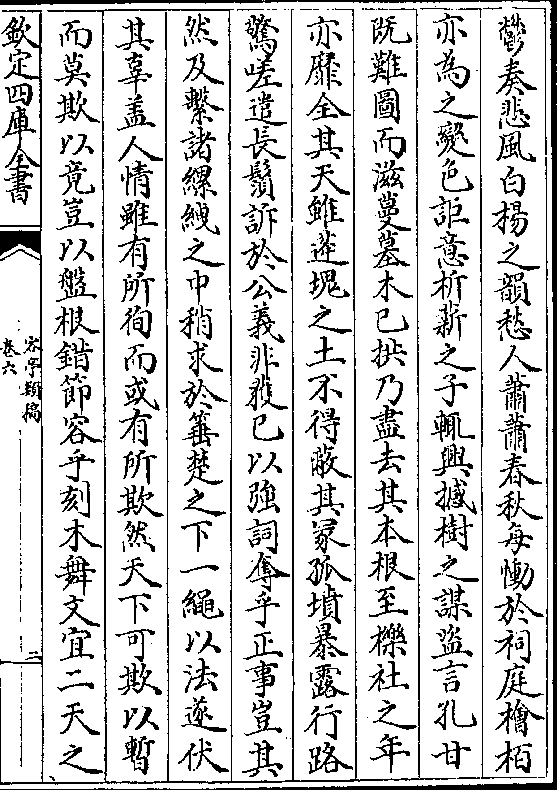 鬱奏悲風白楊之韻愁人蕭蕭春秋每慟於祠庭檜栢
亦為之變色詎意析薪之子輒興撼樹之謀盜言孔甘
既難圖而滋蔓墓木已拱乃盡去其本根至櫟社之年
亦靡全其天雖蓬塊之土不得蔽其冢孤墳暴露行路
驚嗟遣長鬚訴於公義非獲已以強詞奪乎正事豈其
然及繫諸縲絏之中稍求於箠楚之下一繩以法遂伏
其辜盖人情雖有所徇而或有所欺然天下可欺以暫
而莫欺以竟豈以盤根錯節容乎刻木舞文宜二天之
欽定四庫全書
客亭類稿
卷六
二